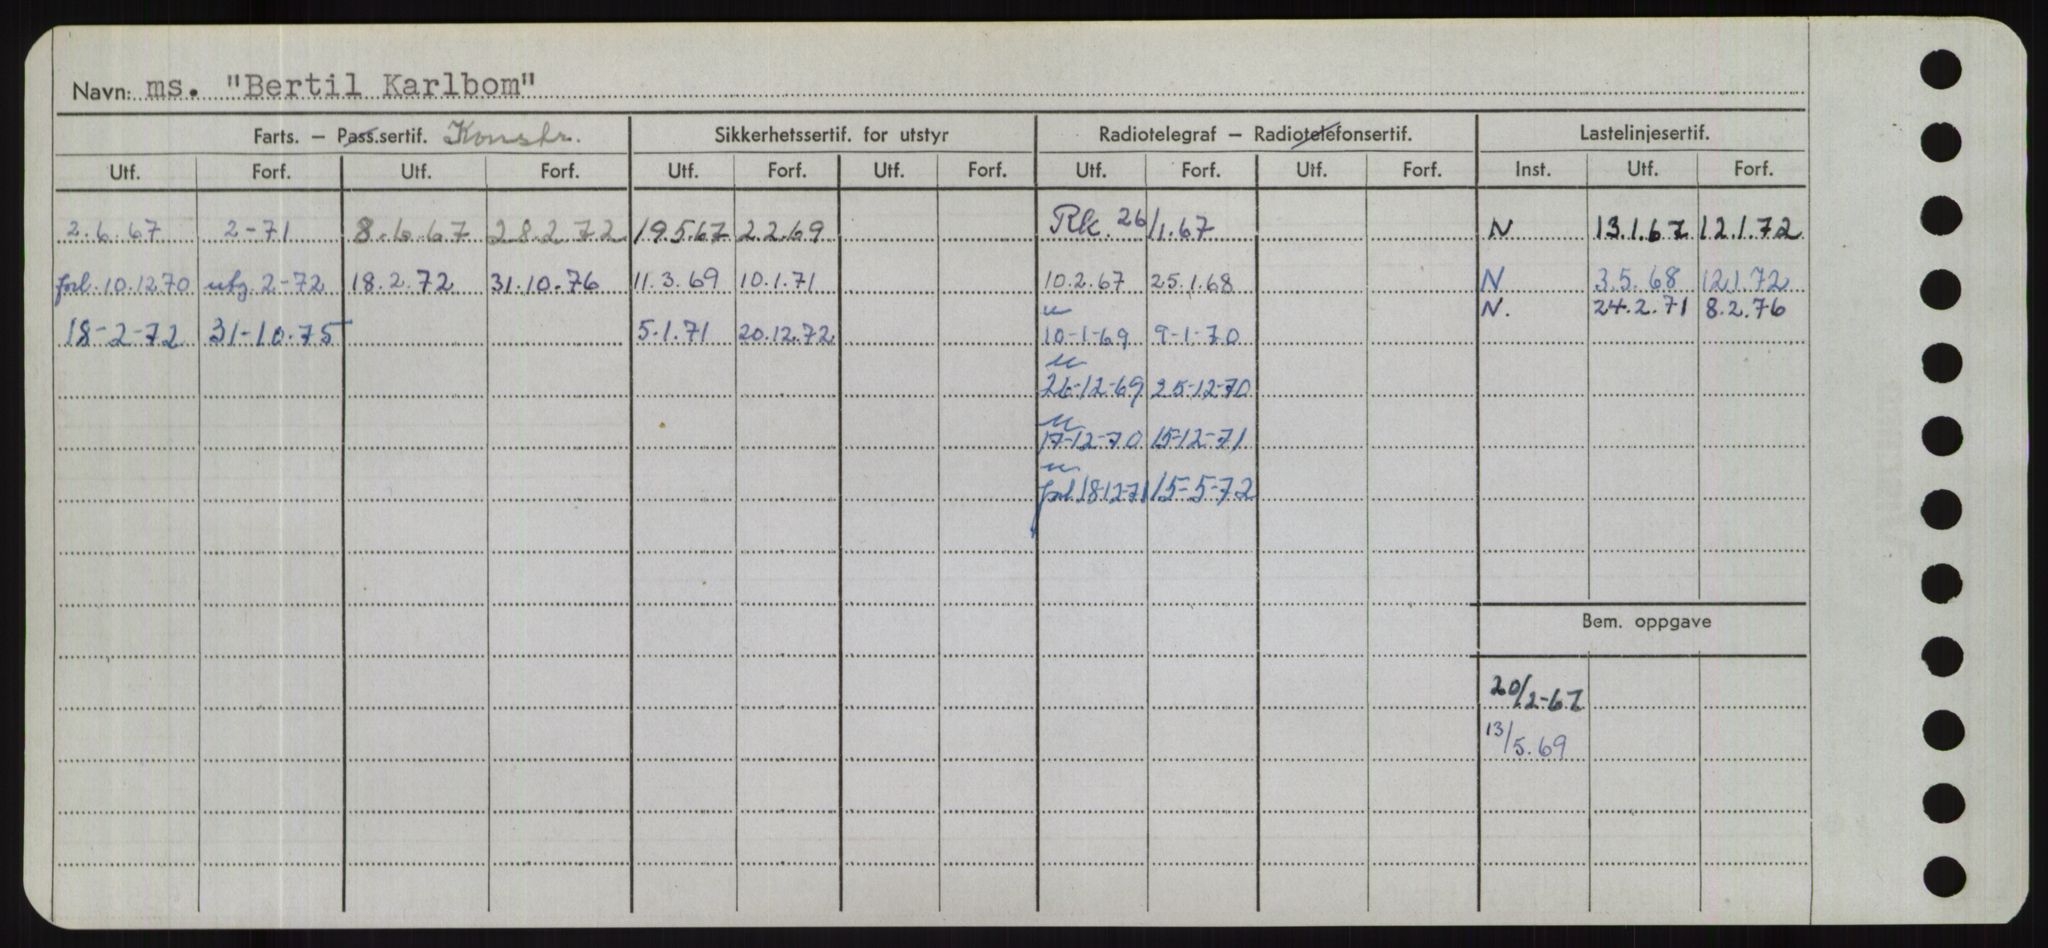 Navn: ms. "Bertil Karlbom"
Farts. – Pass.sertif. Konstr. Sikkerhetssertif. for utstyr Radiotelegraf – Radiotelefonsertif. Lastelinjesertif.
Utf. Forf. Utf. Forf. Utf. Forf. Utf. Forf. Utf. Forf. Utf. Forf. Inst. Utf. Forf.
2.6.67 2-71 8.6.67 28.2.72 19.5.67 2.2.69 Rk. 26/1.67 N 13.1.67 12.1.72
forl. 10.12.70 utg. 2-72 18.2.72 31.10.76 11.3.69 10.1.71 10.2.67 25.1.68 N 3.5.68 12.1.72
N. 24.2.71 8.2.76
18-2-72 31-10-75 5.1.71 20.12.72 10-1-69 9-1-70
26-12-69 25-12-70
17-12-70 15-12-71
forl 18-12-71 15-5-72
Bem. oppgave
20/2-67
13/5.69